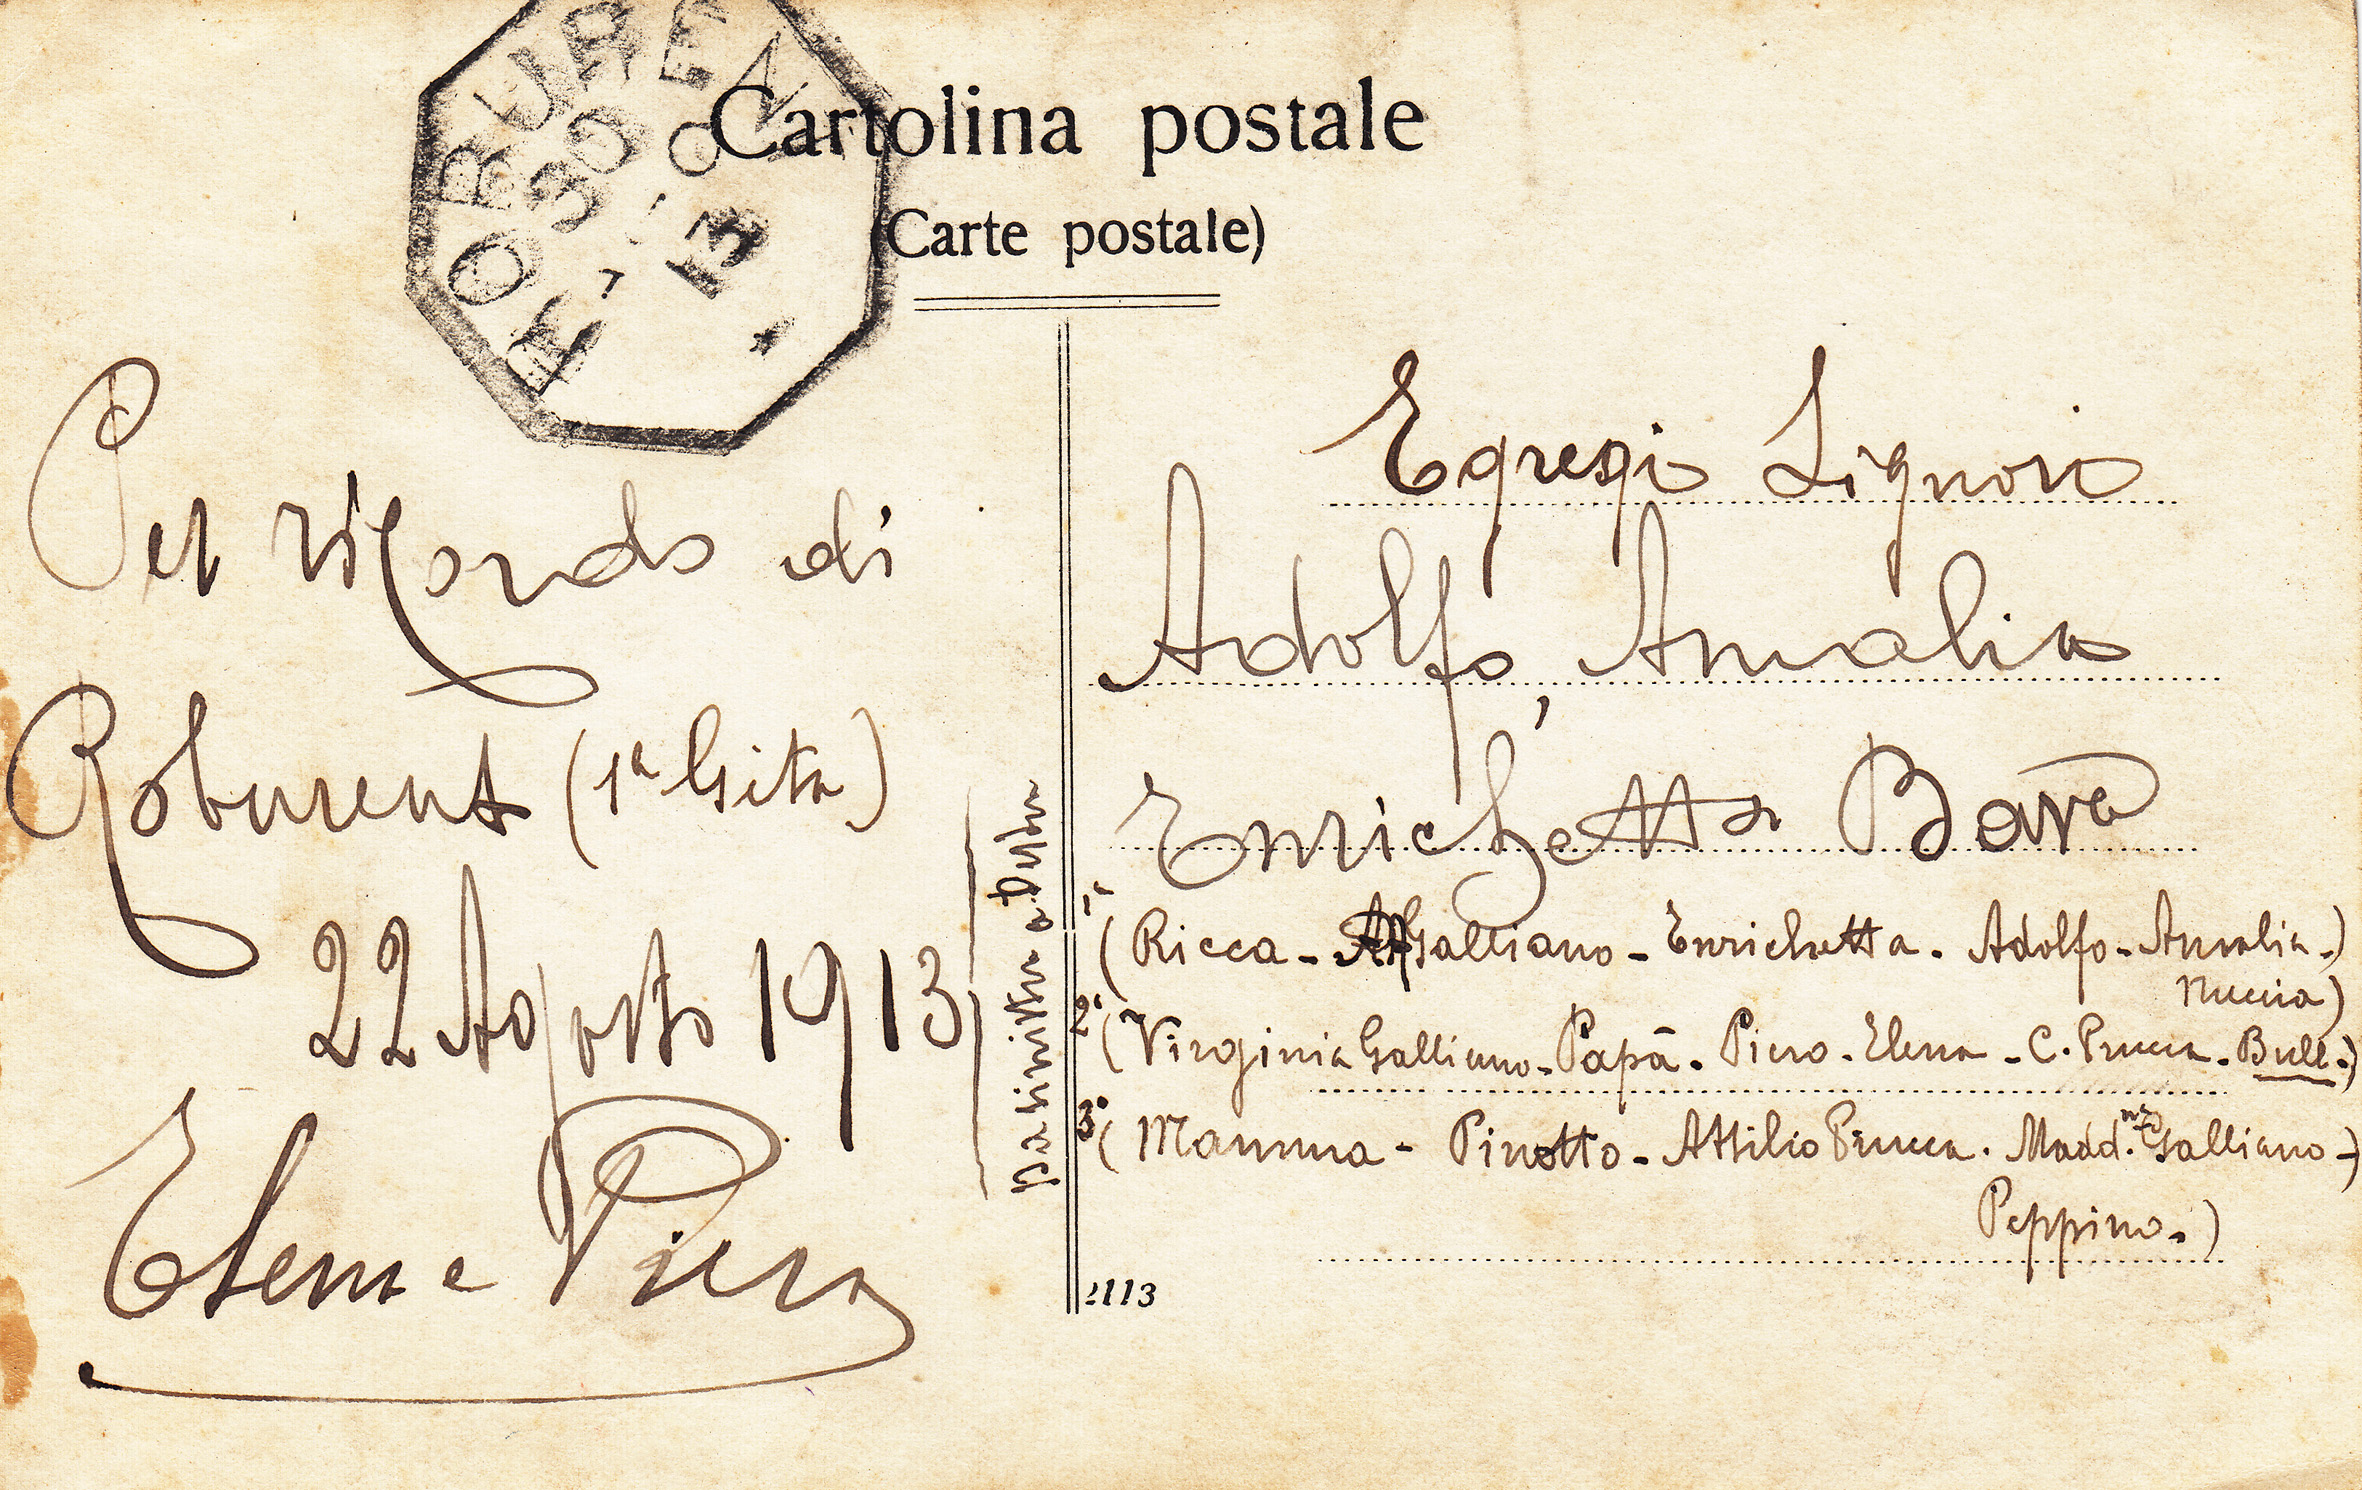 ROBURENT
CUNEO
13
Cartolina postale
(Carte postale)
Per ricordo di
Roburent (1ª Gita)
22 Agosto 1913
Elena e Piero
da sinistra a destra
Egregi Signori
Adolfo, Amalia
Enrichetta Bava
1ª (Ricca - Galliano - Enrichetta - Adolfo - Amalia -)
Nuccia)
2ª (Virginia Galliano - Papà - Piero - Elena - C. Prucca - Bull.)
3ª (Mamma - Pinotto - Attilio Prucca - Madd.na Galliano -)
Peppino -)
1113